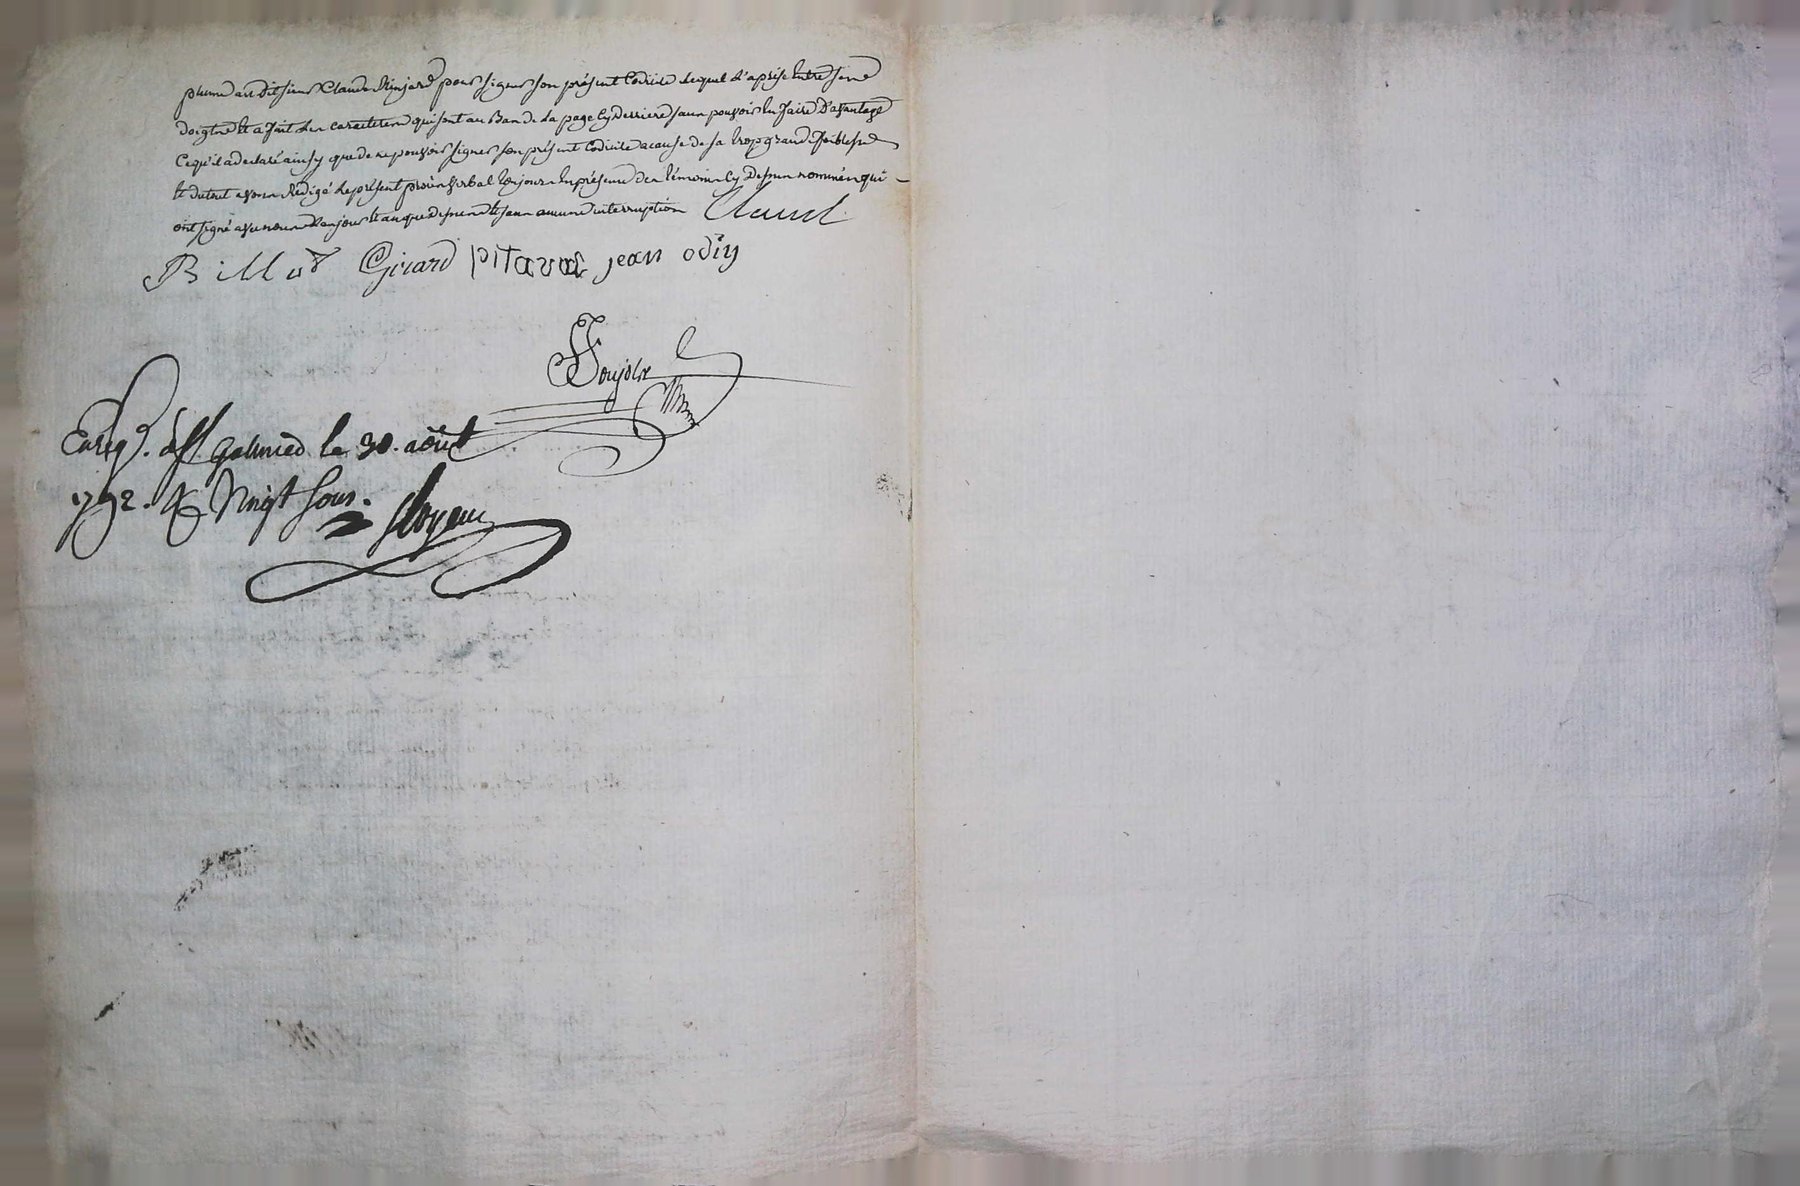 plume au dit sieur Claude pour signer son présent Codicile lequel l'a prise entre ses
doigts et a fait des caracteres qui sont au Bas de la page Cy derriere sans pouvoir En faire D'avantage
Ce qu'il a declaré ainsy que de ne pouvoir signer son présent Codicile a cause de sa trop grande foiblesse
Et du tout avons Rédigé le présent procès verbal En présence des témoins Cy Dessus nommés qui
ont signé avec nous Les jour Et an que dessus et sans aucune interruption Claude
Billod Girard pitaval jean odin
Enreg. à St. Galmier le 30. août
1792. Vingt sous.